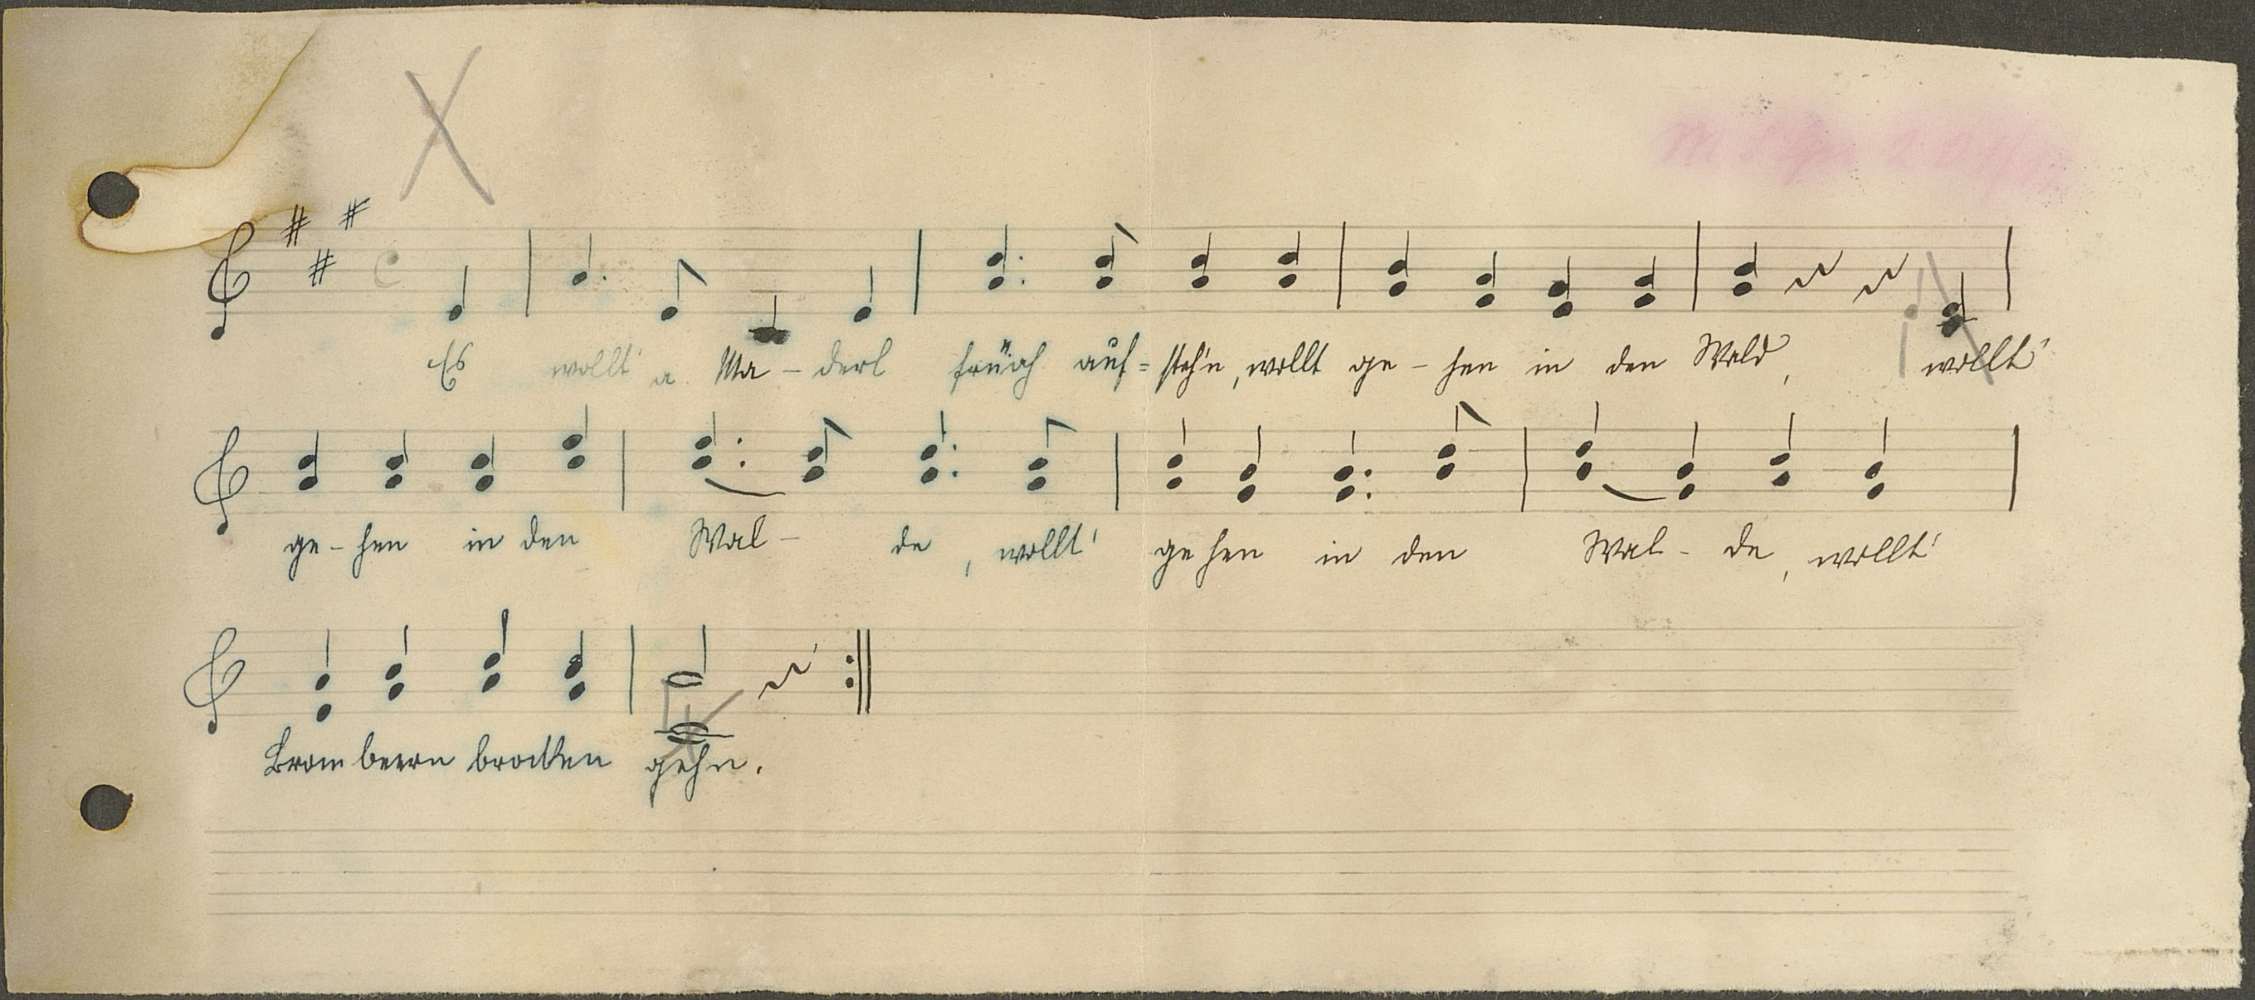 Es wollt' a Ma - derl früah auf = steh'n, wollt ge - hen in den Wald, wollt'
ge - hen in den Wal - de, wollt' gehen in den Wal - de, wollt'
Brombeern brocken gehn.